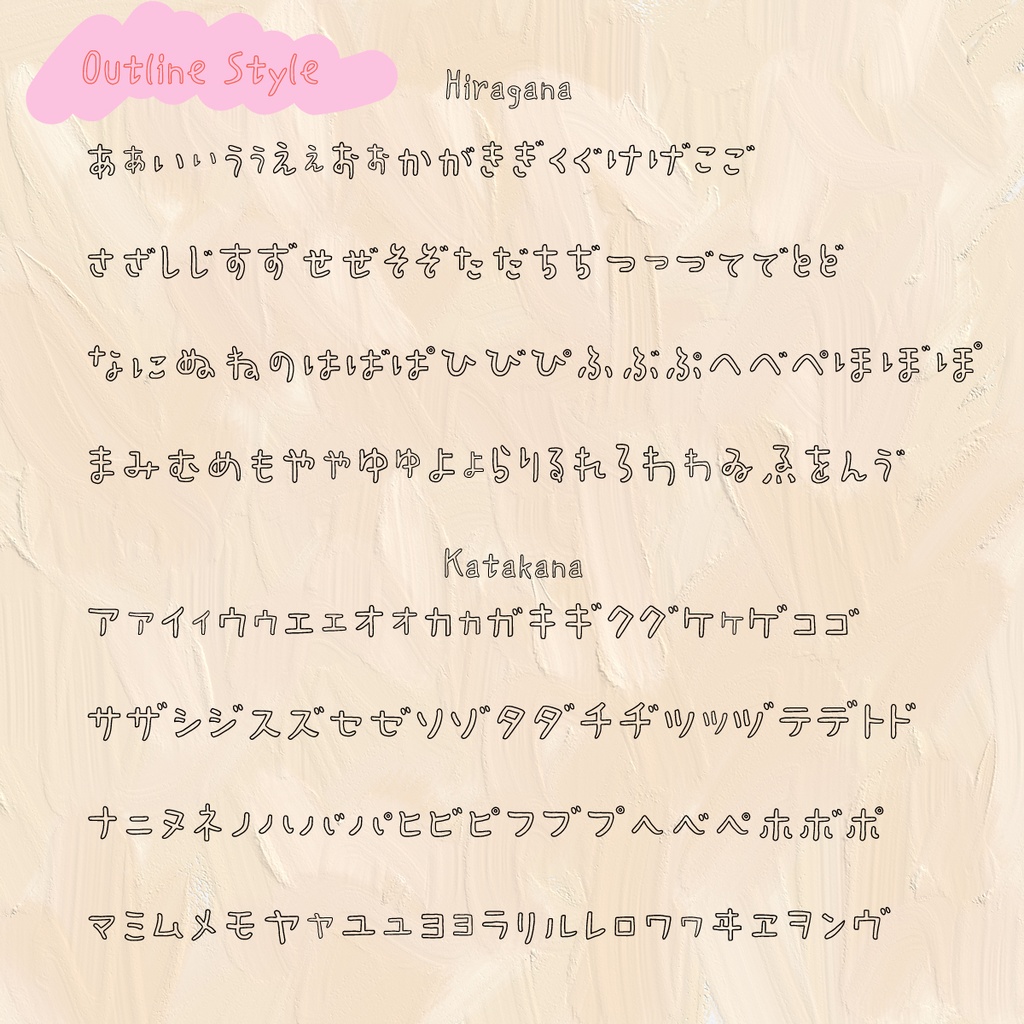 Outline Style
Hiragana
あぁいぃうぅえぇおぉかがきぎくぐけげこご
さざしじすずせぜそぞただちぢつっづてでとど
なにぬねのはばぱひびぴふぶぷへべぺほぼぽ
まみむめもやゃゆゅよょらりるれろわゎゐゑをんゔ
Katakana
アァイィウゥエェオォカヵガキギクグケヶゲコゴ
サザシジスズセゼソゾタダチヂツッヅテデトド
ナニヌネノハバパヒビピフブプヘベペホボポ
マミムメモヤャユュヨョラリルレロワヮヰヱヲンヴ